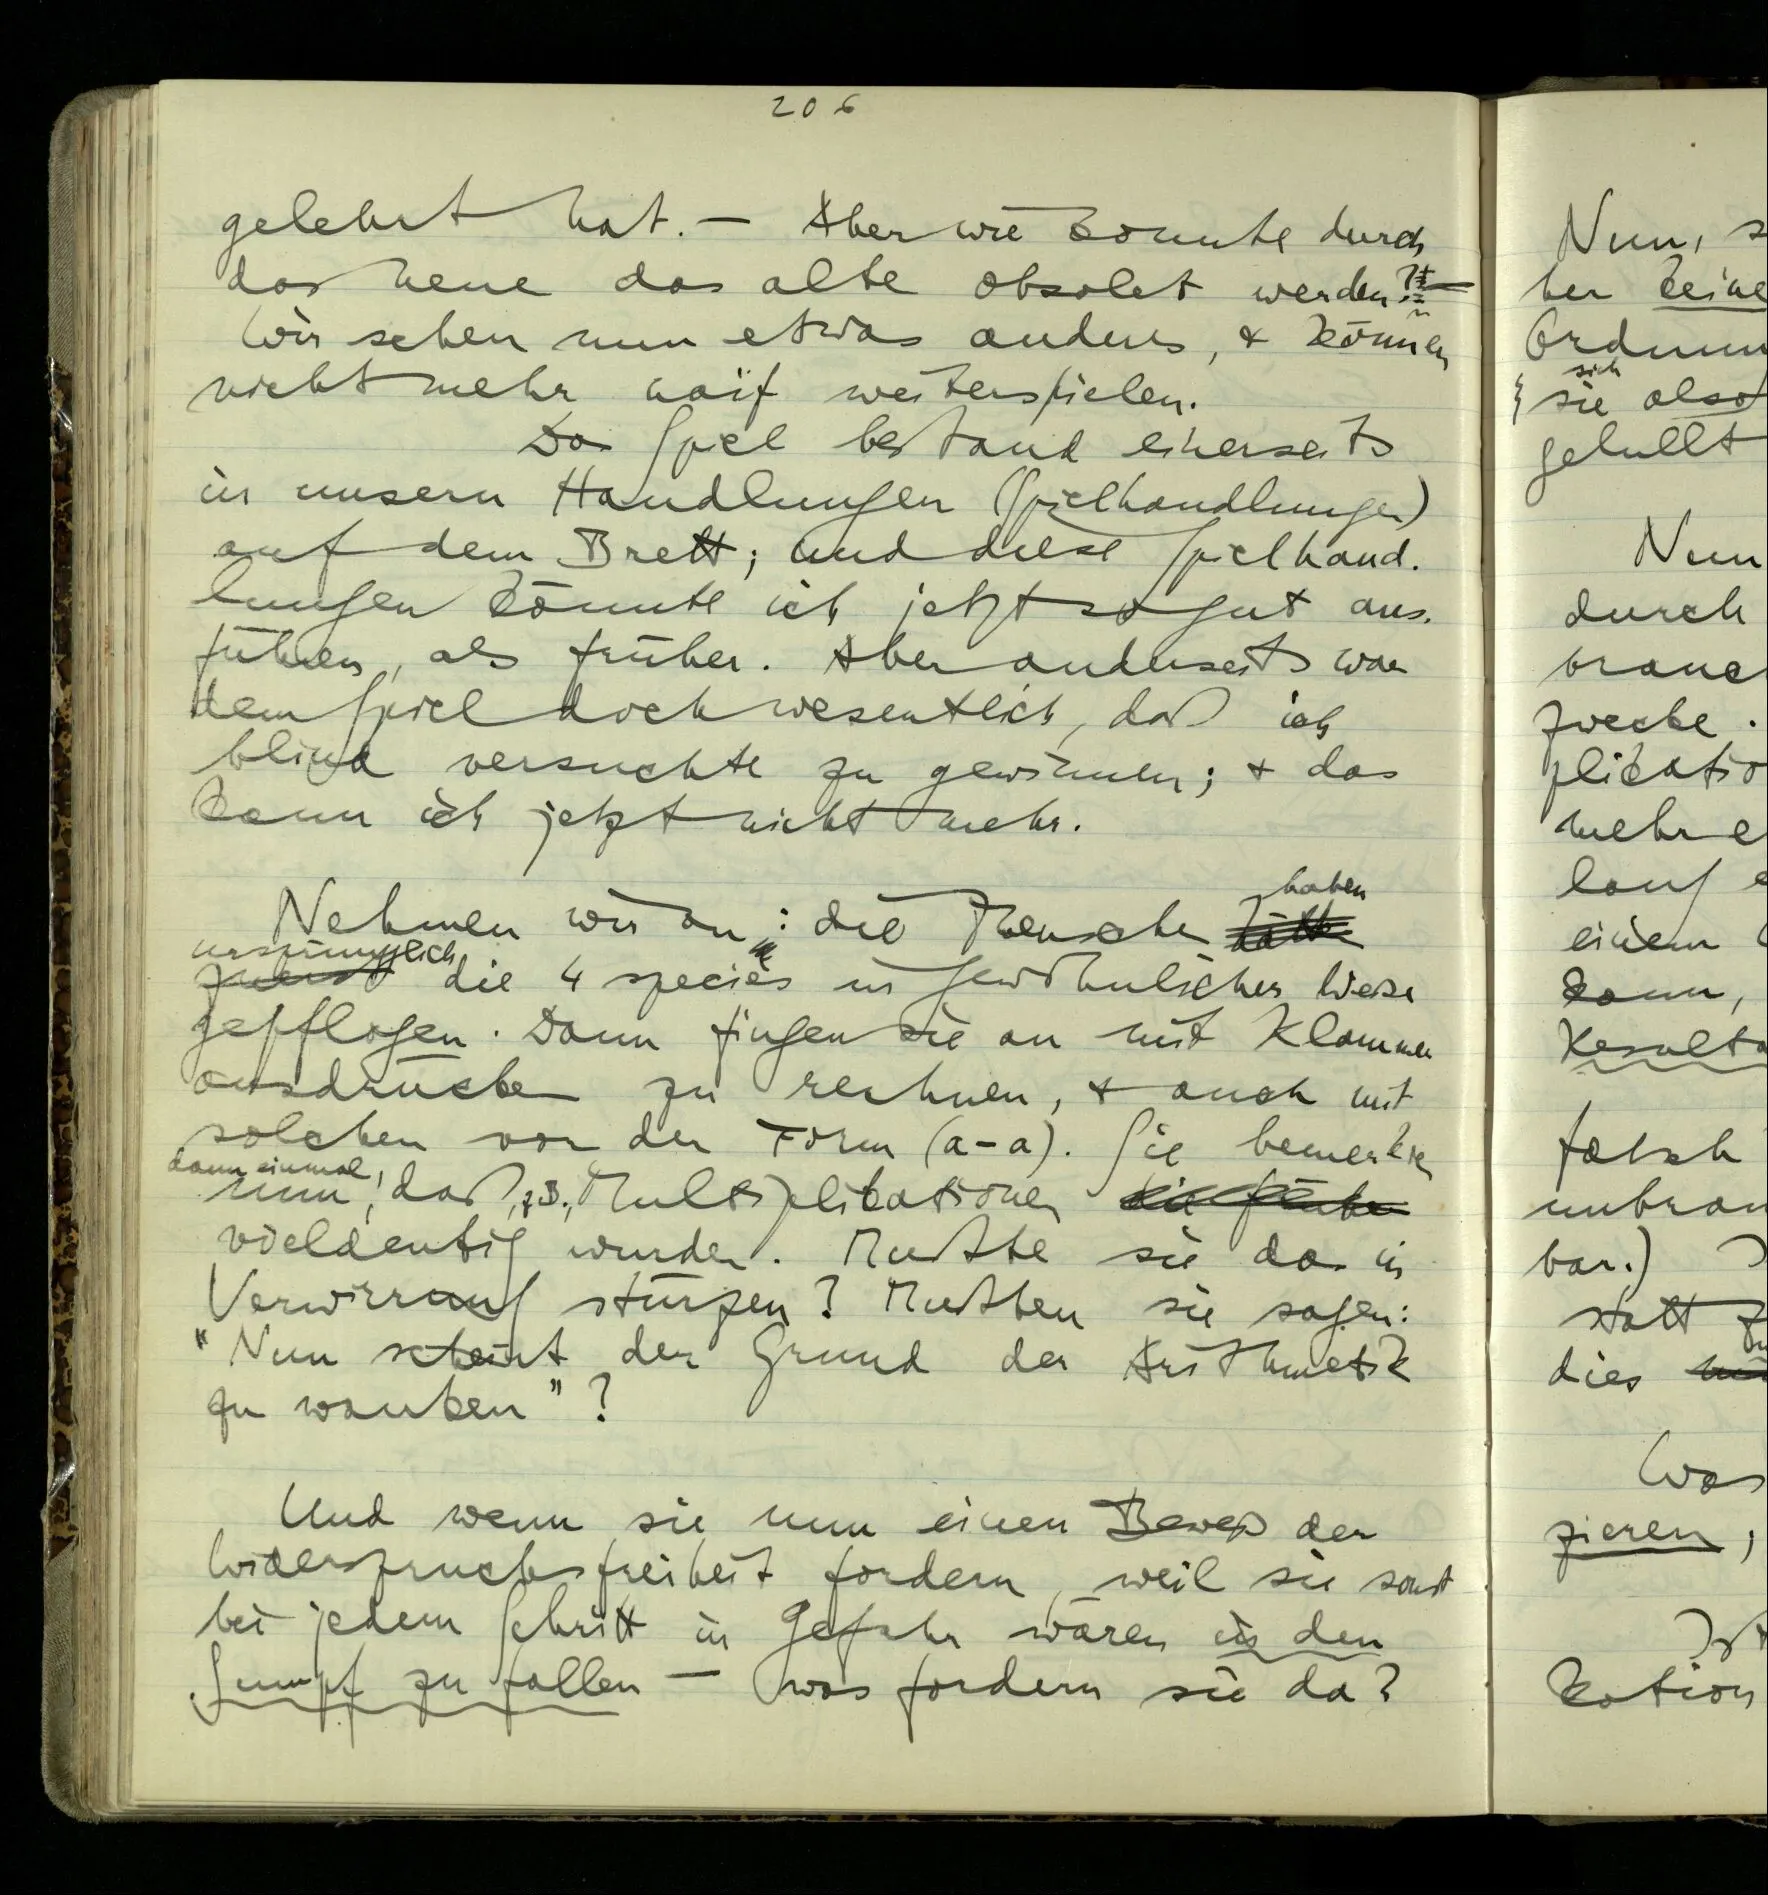 206
gelehrt hat. — Aber wie konnte durch
das neue das alte obsolet werden? —
Wir sehen nun etwas anderes, & können
nicht mehr naïf weiterspielen.
Das Spiel bestand einerseits
in unsern Handlungen (Spielhandlungen)
auf dem Brett; und diese Spielhand-
lungen könnte ich jetzt so gut aus-
führen, als früher. Aber anderseits war
dem Spiel doch wesentlich, daß ich
blind versuchte zu gewinnen; & das
kann ich jetzt nicht mehr.
Nehmen wir an: die Menschen haben
ursprünglich die 4 species in gewöhnlicher Weise
gepflogen. Dann fingen sie an mit Klammer
ausdrücken zu rechnen, & auch mit
solchen von der Form (a-a). Sie bemerkten
dann einmal, daß, z.B., Multiplikationen
vieldeutig wurden. Mußte sie das in
Verwirrung stürzen? Mußten sie sagen:
"Nun scheint der Grund der Arithmetik
zu wanken"?
Und wenn sie nun einen Beweis der
Widerspruchsfreiheit fordern, weil sie sonst
bei jedem Schritt in Gefahr wären in den
Sumpf zu fallen — was fordern sie da?
Nun, s
ber keine
Ordnun
sich
sie also
gehüllt
Nun
durch
brauc
zwecke.
plikatio
mehr e
lauf e
einem
kann,
Resulta
falsch
unbrau
bar.)
statt z
dies
Was
zieren,
Ist
kation